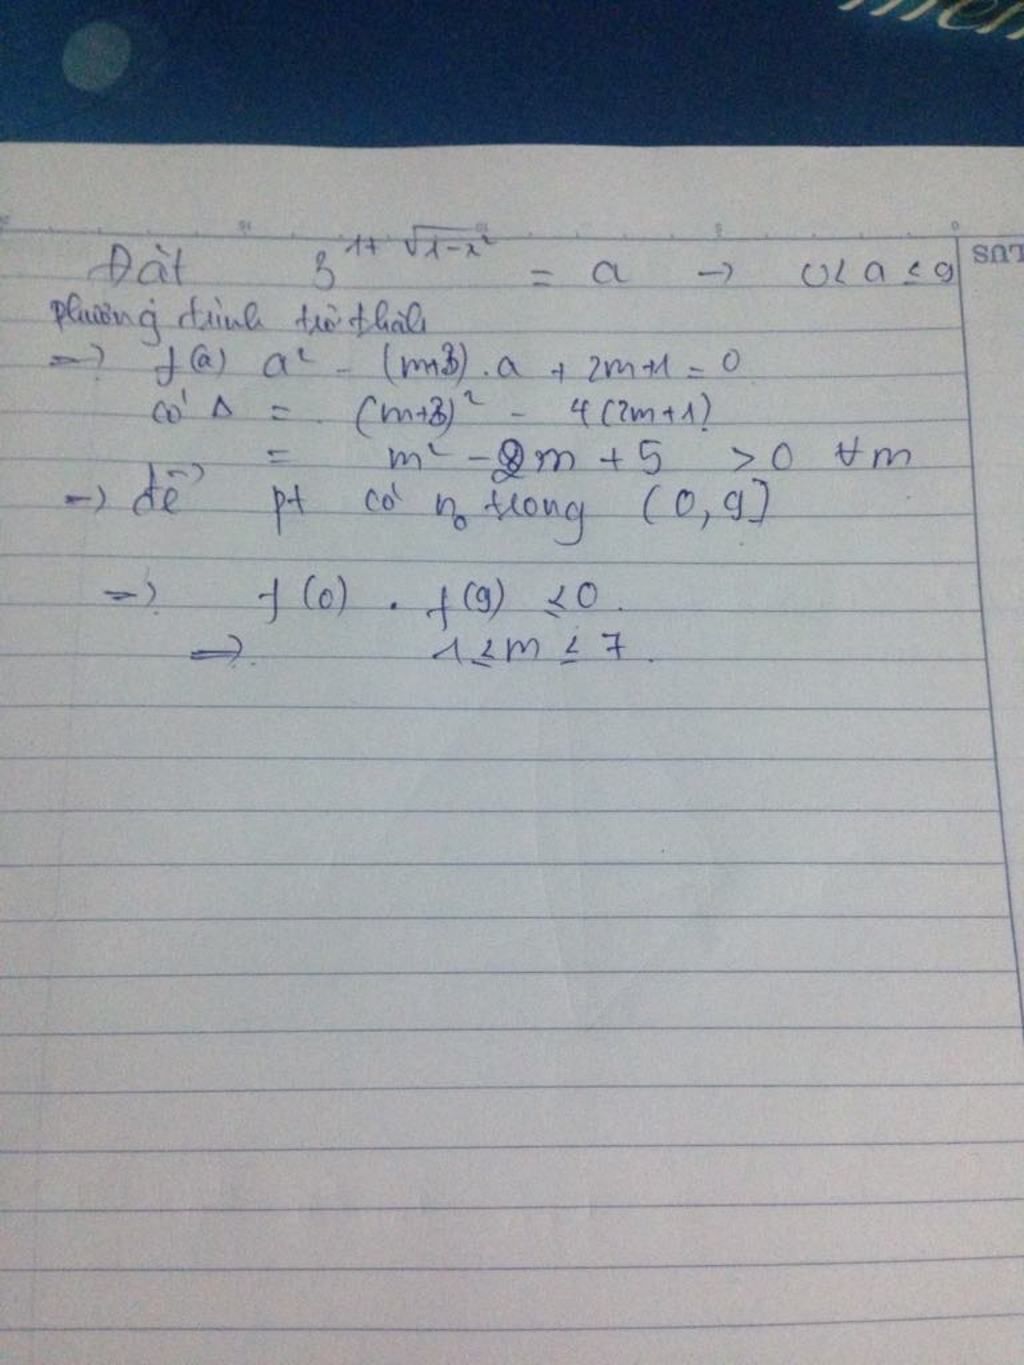 Đặt 3^{1+√(1-x²)} = a → 0 < a ≤ 9
phương trình trở thành
=> f(a) a² - (m+3).a + 2m+1 = 0
có Δ = (m+3)² - 4(2m+1)
= m² - 2m + 5 > 0 ∀m
=> để pt có n₀ trong (0,9]
=> f(0) . f(9) ≤ 0.
=> 1 ≤ m ≤ 7.